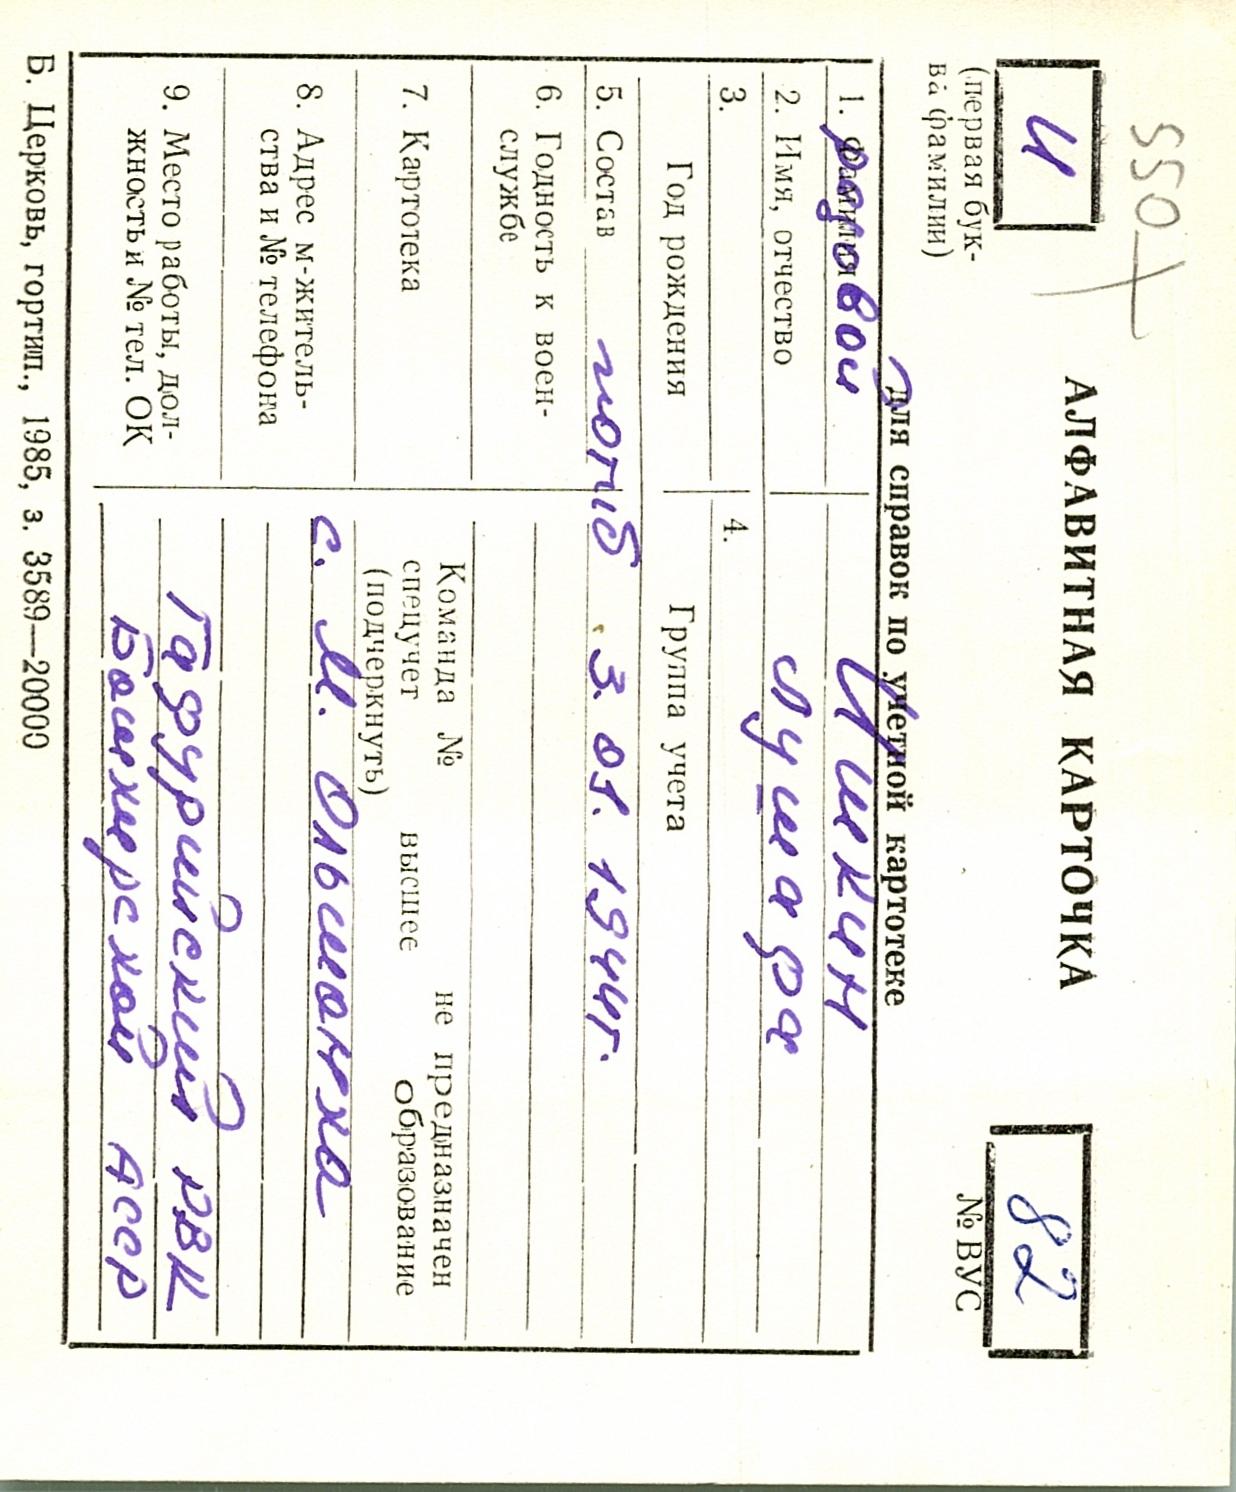 550
И
(первая бук-
ва фамилии)
АЛФАВИТНАЯ КАРТОЧКА
82
№ ВУС
Для справок по учетной картотеке
1. Фамилия
рядовой
Ишкин
2. Имя, отчество
Лушафа
3.
Год рождения
4.
Группа учета
5. Состав
погиб 3. 01. 1944г.
6. Годность к воен-
службе
7. Картотека
Команда № не предназначен
спецучет высшее образование
(подчеркнуть)
8. Адрес м-житель-
ства и № телефона
с. М. Ольшанка
9. Место работы, дол-
жность и № тел. ОК
Гафурийский РВК
Башкирской АССР
Б. Церковь, гортип., 1985, з. 3589—20000